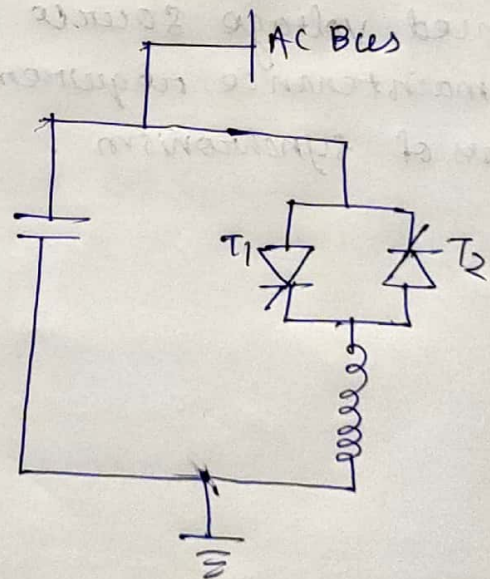 AC Bus
T1
T2